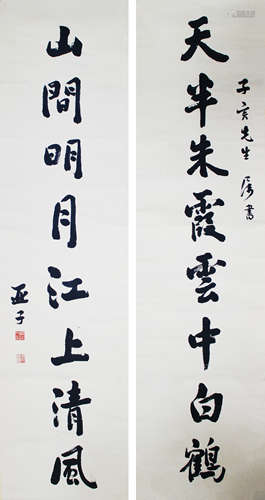 天半朱霞雲中白鶴
子亥先生属書
山間明月江上清風
亚子